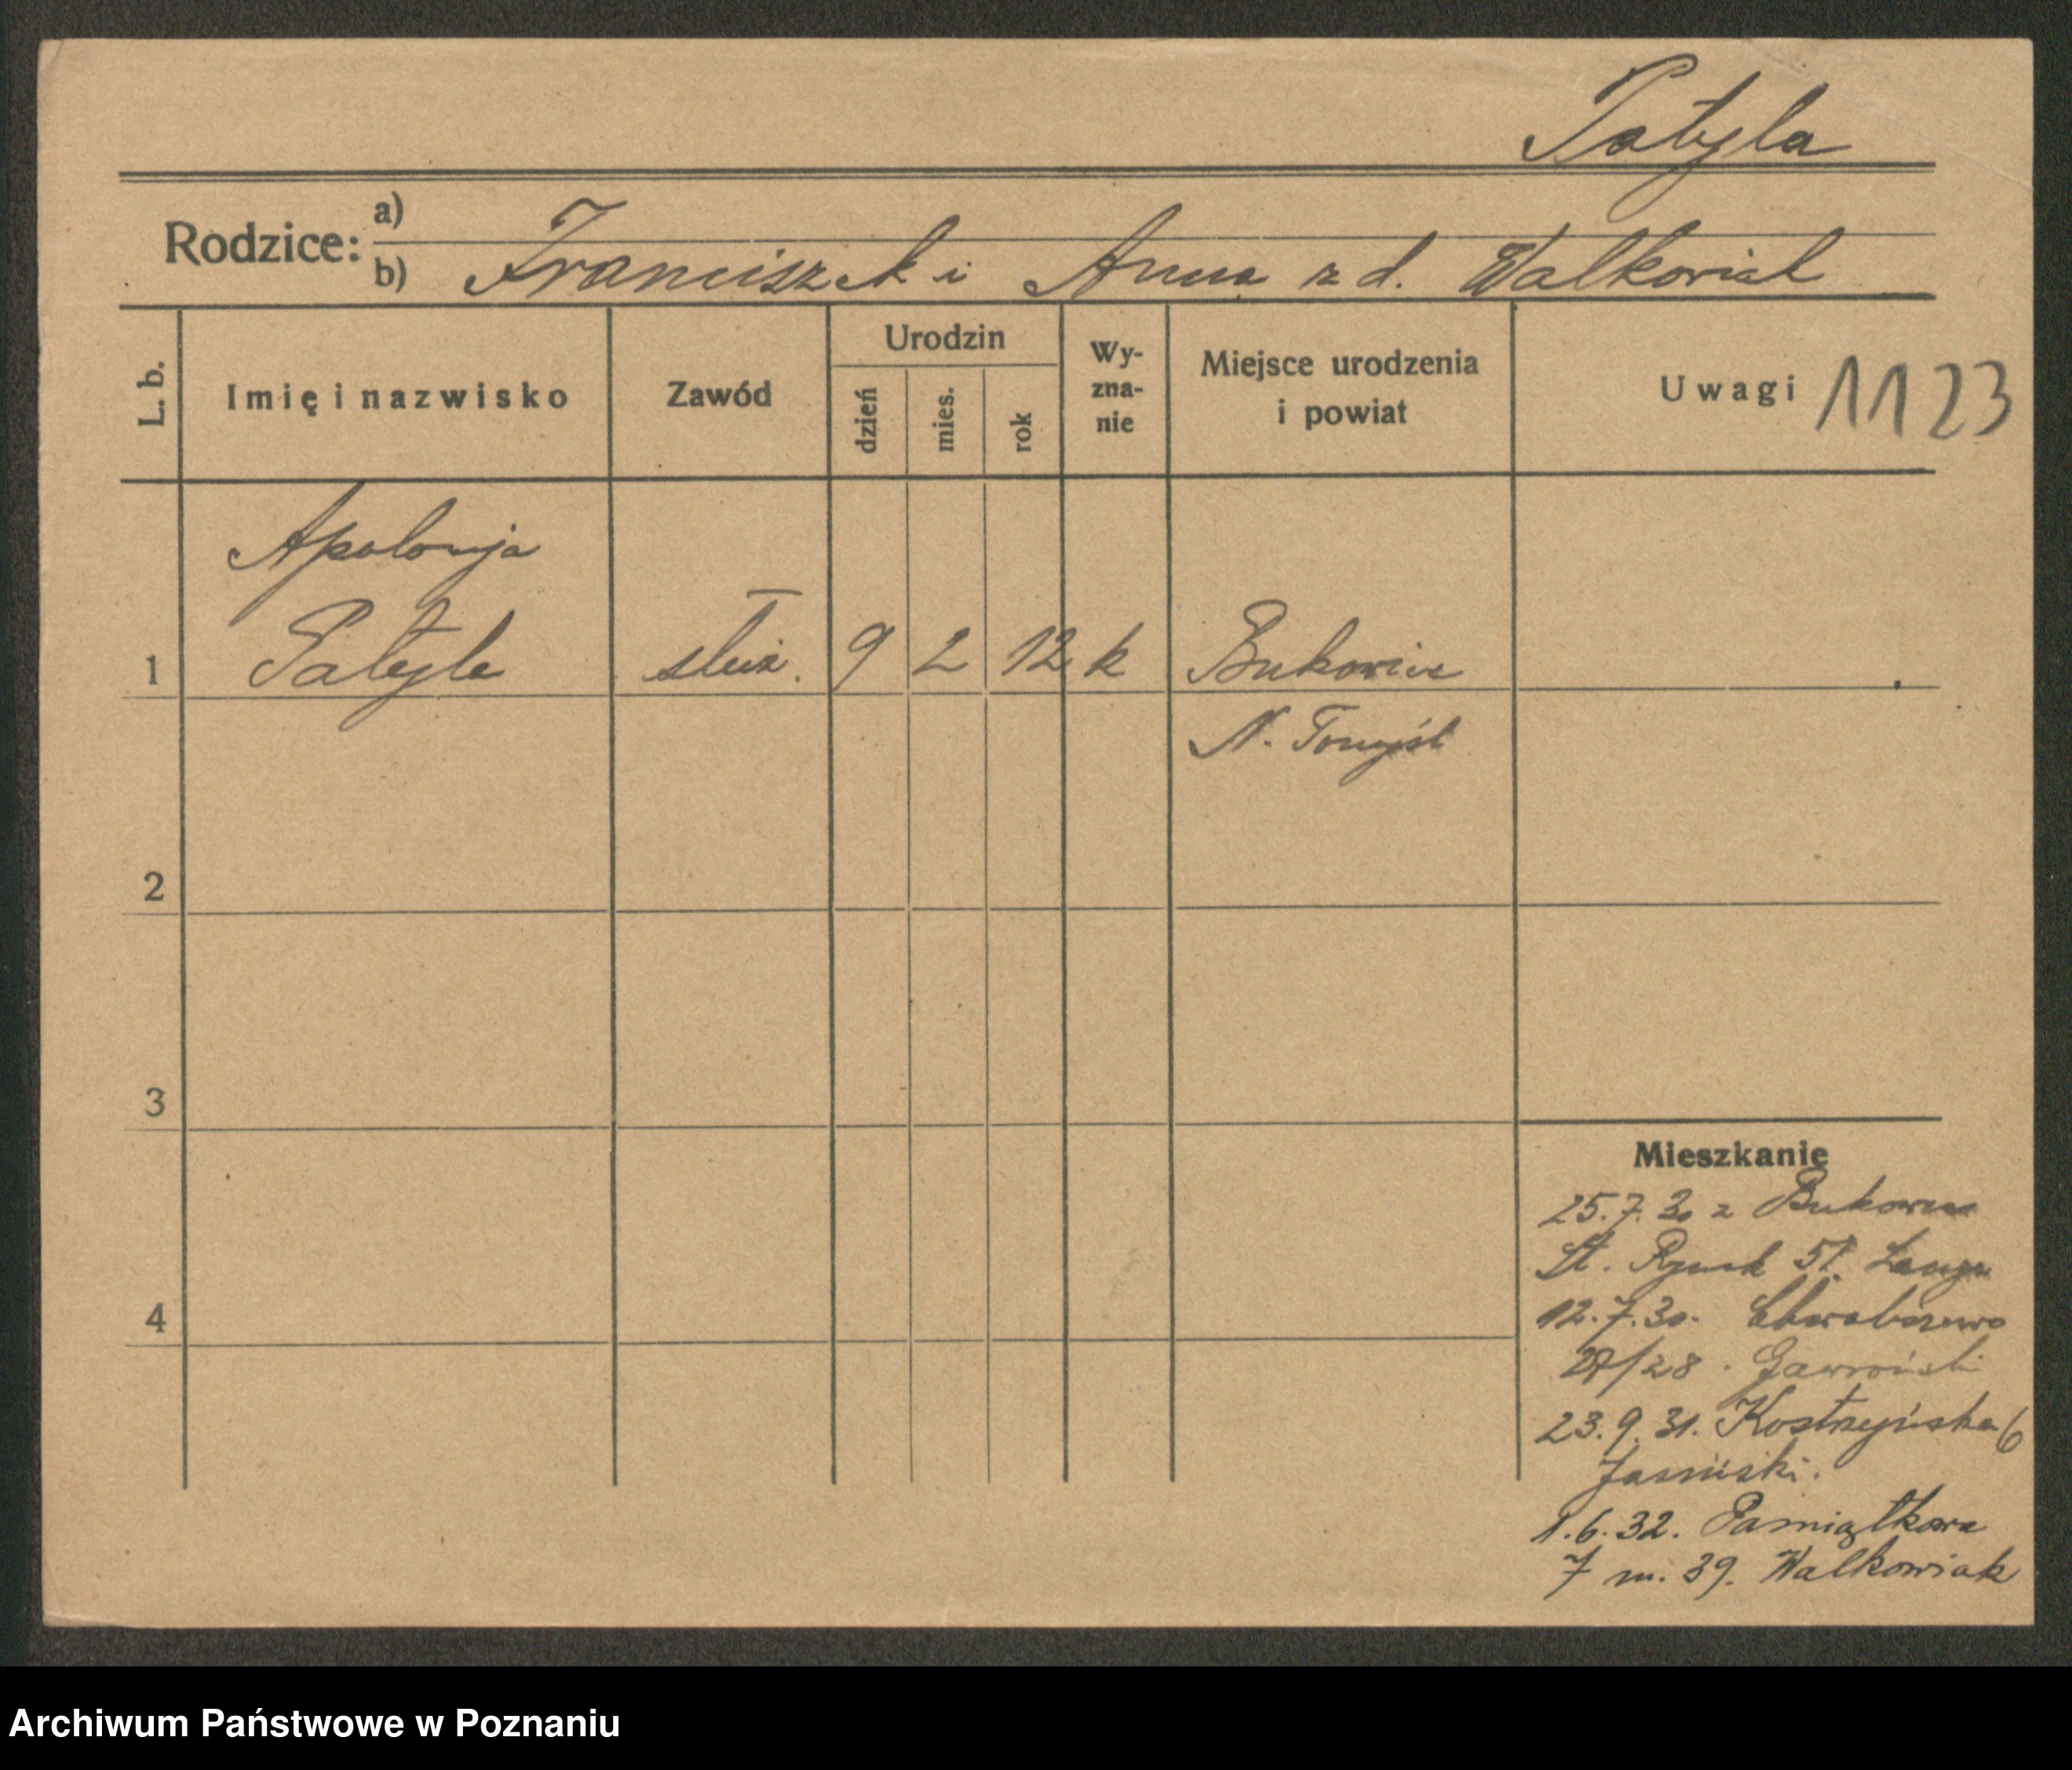 Patyla
Rodzice: a)
b) Franciszek i Anna z d. Walkowiak
L. b.
Imię i nazwisko
Zawód
Urodzin
dzień
mies.
rok
Wy-
zna-
nie
Miejsce urodzenia
i powiat
Uwagi 1123
Apolonja
1 Patyla służ. 9 2 12 k Bukowiec
N. Tomyśl
2
3
4
Mieszkanie
25.7.30 z Bukowca
St. Rynek 51.
12.7.30.
27/28.
23.9.31. Kostrzyńska 6
Jasiński.
1.6.32. Pamiątkowa
7 m. 39. Walkowiak
Archiwum Państwowe w Poznaniu